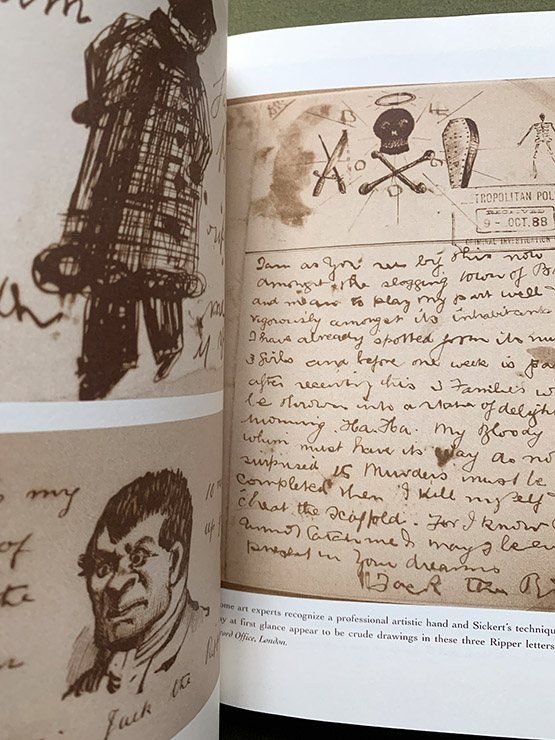 my
of
the
Jack the
TROPOLITAN POL
RECEIVED
9 - OCT. 88
CRIMINAL INVESTIGATION
I am as you see by this note
amongst the slogging town of B
and mean to play my part well
vigorously amongst its inhabitants
I have already spotted from its
3 girls and before one week is pa
after receiving this 3 Families w
be thrown into a state of delight
morning. Ha. Ha. My Bloody
whim must have its way do no
surprised 15 Murders must be
completed then I kill myself
cheat the scaffold. For I know
cannot catch me & I may be even
present in your dreams
Jack the R
ome art experts recognize a professional artistic hand and Sickert's technique
ay at first glance appear to be crude drawings in these three Ripper letters
ord Office, London.